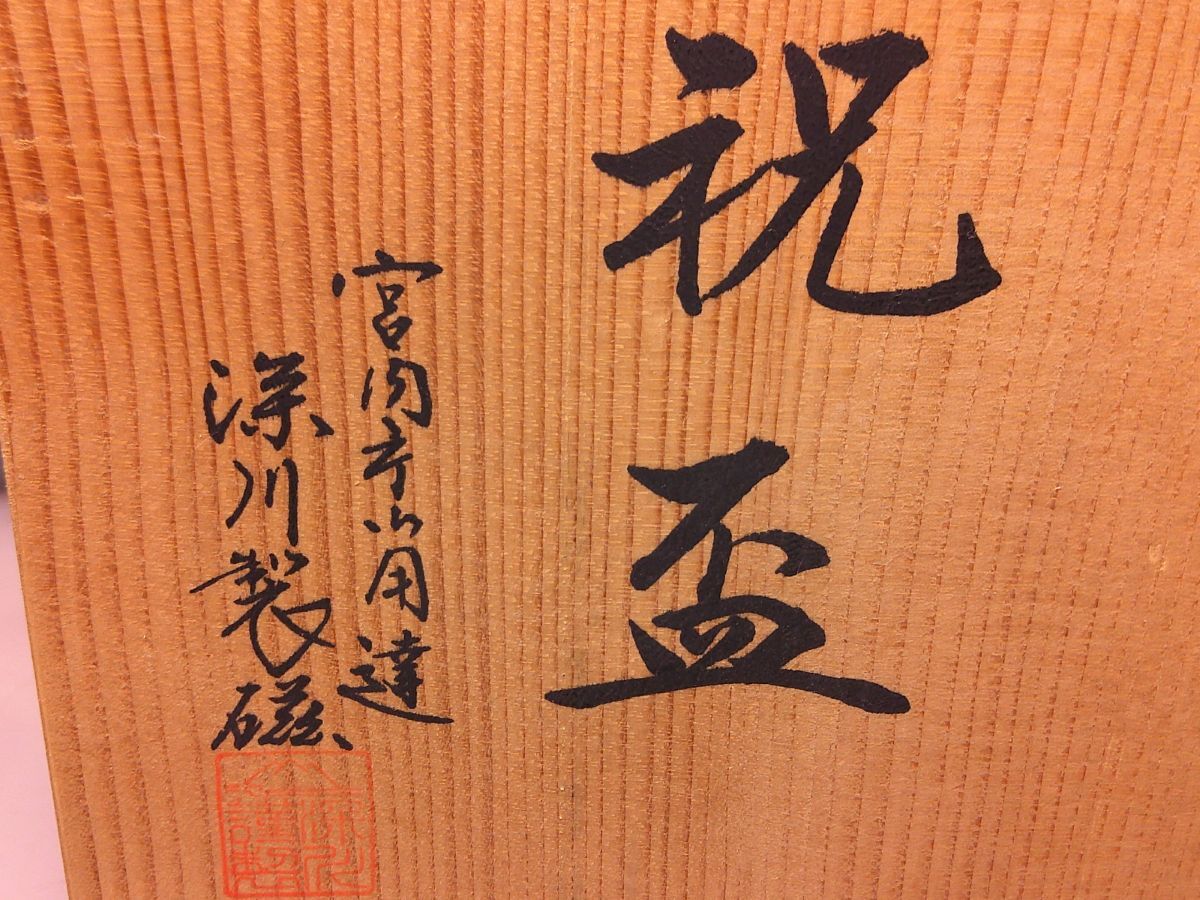 祝盃
宮内庁御用達
深川製磁